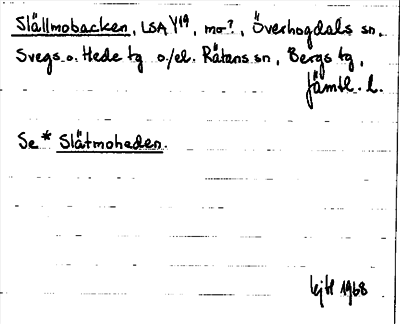 Slällmobacken, LSA Y19, mo?, Överhogdals sn,
Svegs o. Hede tg o./el. Rätans sn, Bergs tg,
Jämtl. l.
Se * Slätmoheden.
1968